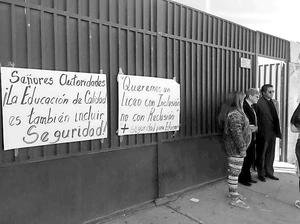 Señores Autoridades
¡La Educación de Calidad
es también incluir
Seguridad!
Queremos un
liceo con Inclusión
no con Reclusión
+ seguridad